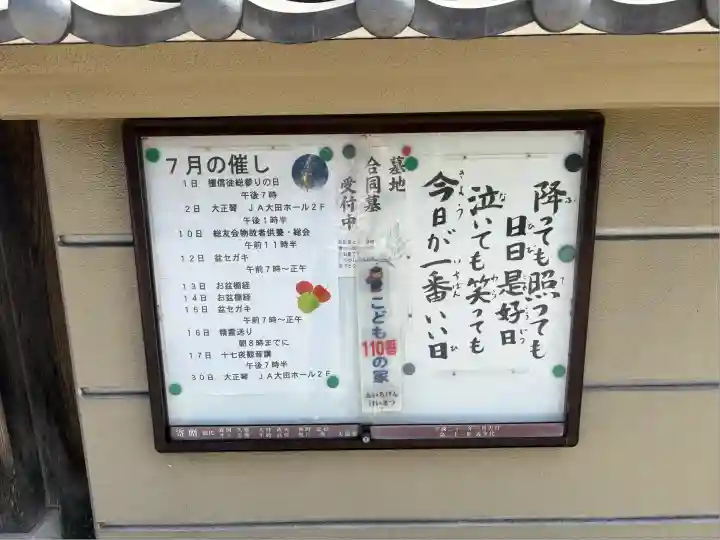 7月の催し
1日 檀信徒総参りの日
午後7時
2日 大正琴 JA大田ホール2F
午後1時半
10日 総友会物故者供養・総会
午前11時半
12日 盆セガキ
午前7時〜正午
13日 お盆棚経
14日 お盆棚経
15日 盆セガキ
午前7時〜正午
16日 精霊送り
朝8時までに
17日 十七夜観音講
午後7時半
30日 大正琴 JA大田ホール2F
墓地
合同墓
受付中
こども
110番
の家
あいちけん
けいさつ
降っても照っても
日日是好日
泣いても笑っても
今日が一番いい日
寄贈